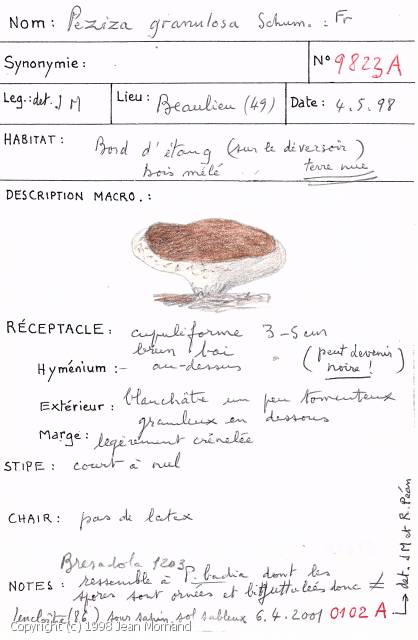 Nom: Peziza granulosa Schum. : Fr
Synonymie:
N° 9823A
Leg.: det. J M
Lieu: Beaulieu (49)
Date: 4.5.98
HABITAT: Bord d'étang (sur le déversoir)
bois mêlé terre nue
DESCRIPTION MACRO.:
RÉCEPTACLE: cupuliforme 3-5 cm
brun bai
Hyménium:- au-dessus " (peut devenir
noire!)
Extérieur: blanchâtre un peu tomenteux
granuleux en dessous
Marge: legèrement crénelée
STIPE: court à nul
CHAIR: pas de latex
Bresadola 1203
NOTES: ressemble à P. badia dont les
spores sont ornées et biguttulées donc ≠
(86) sous sapin sol sableux 6.4.2001 0102 A
det. JM et R. Péan
Copyright (c) 1998 Jean Mornand